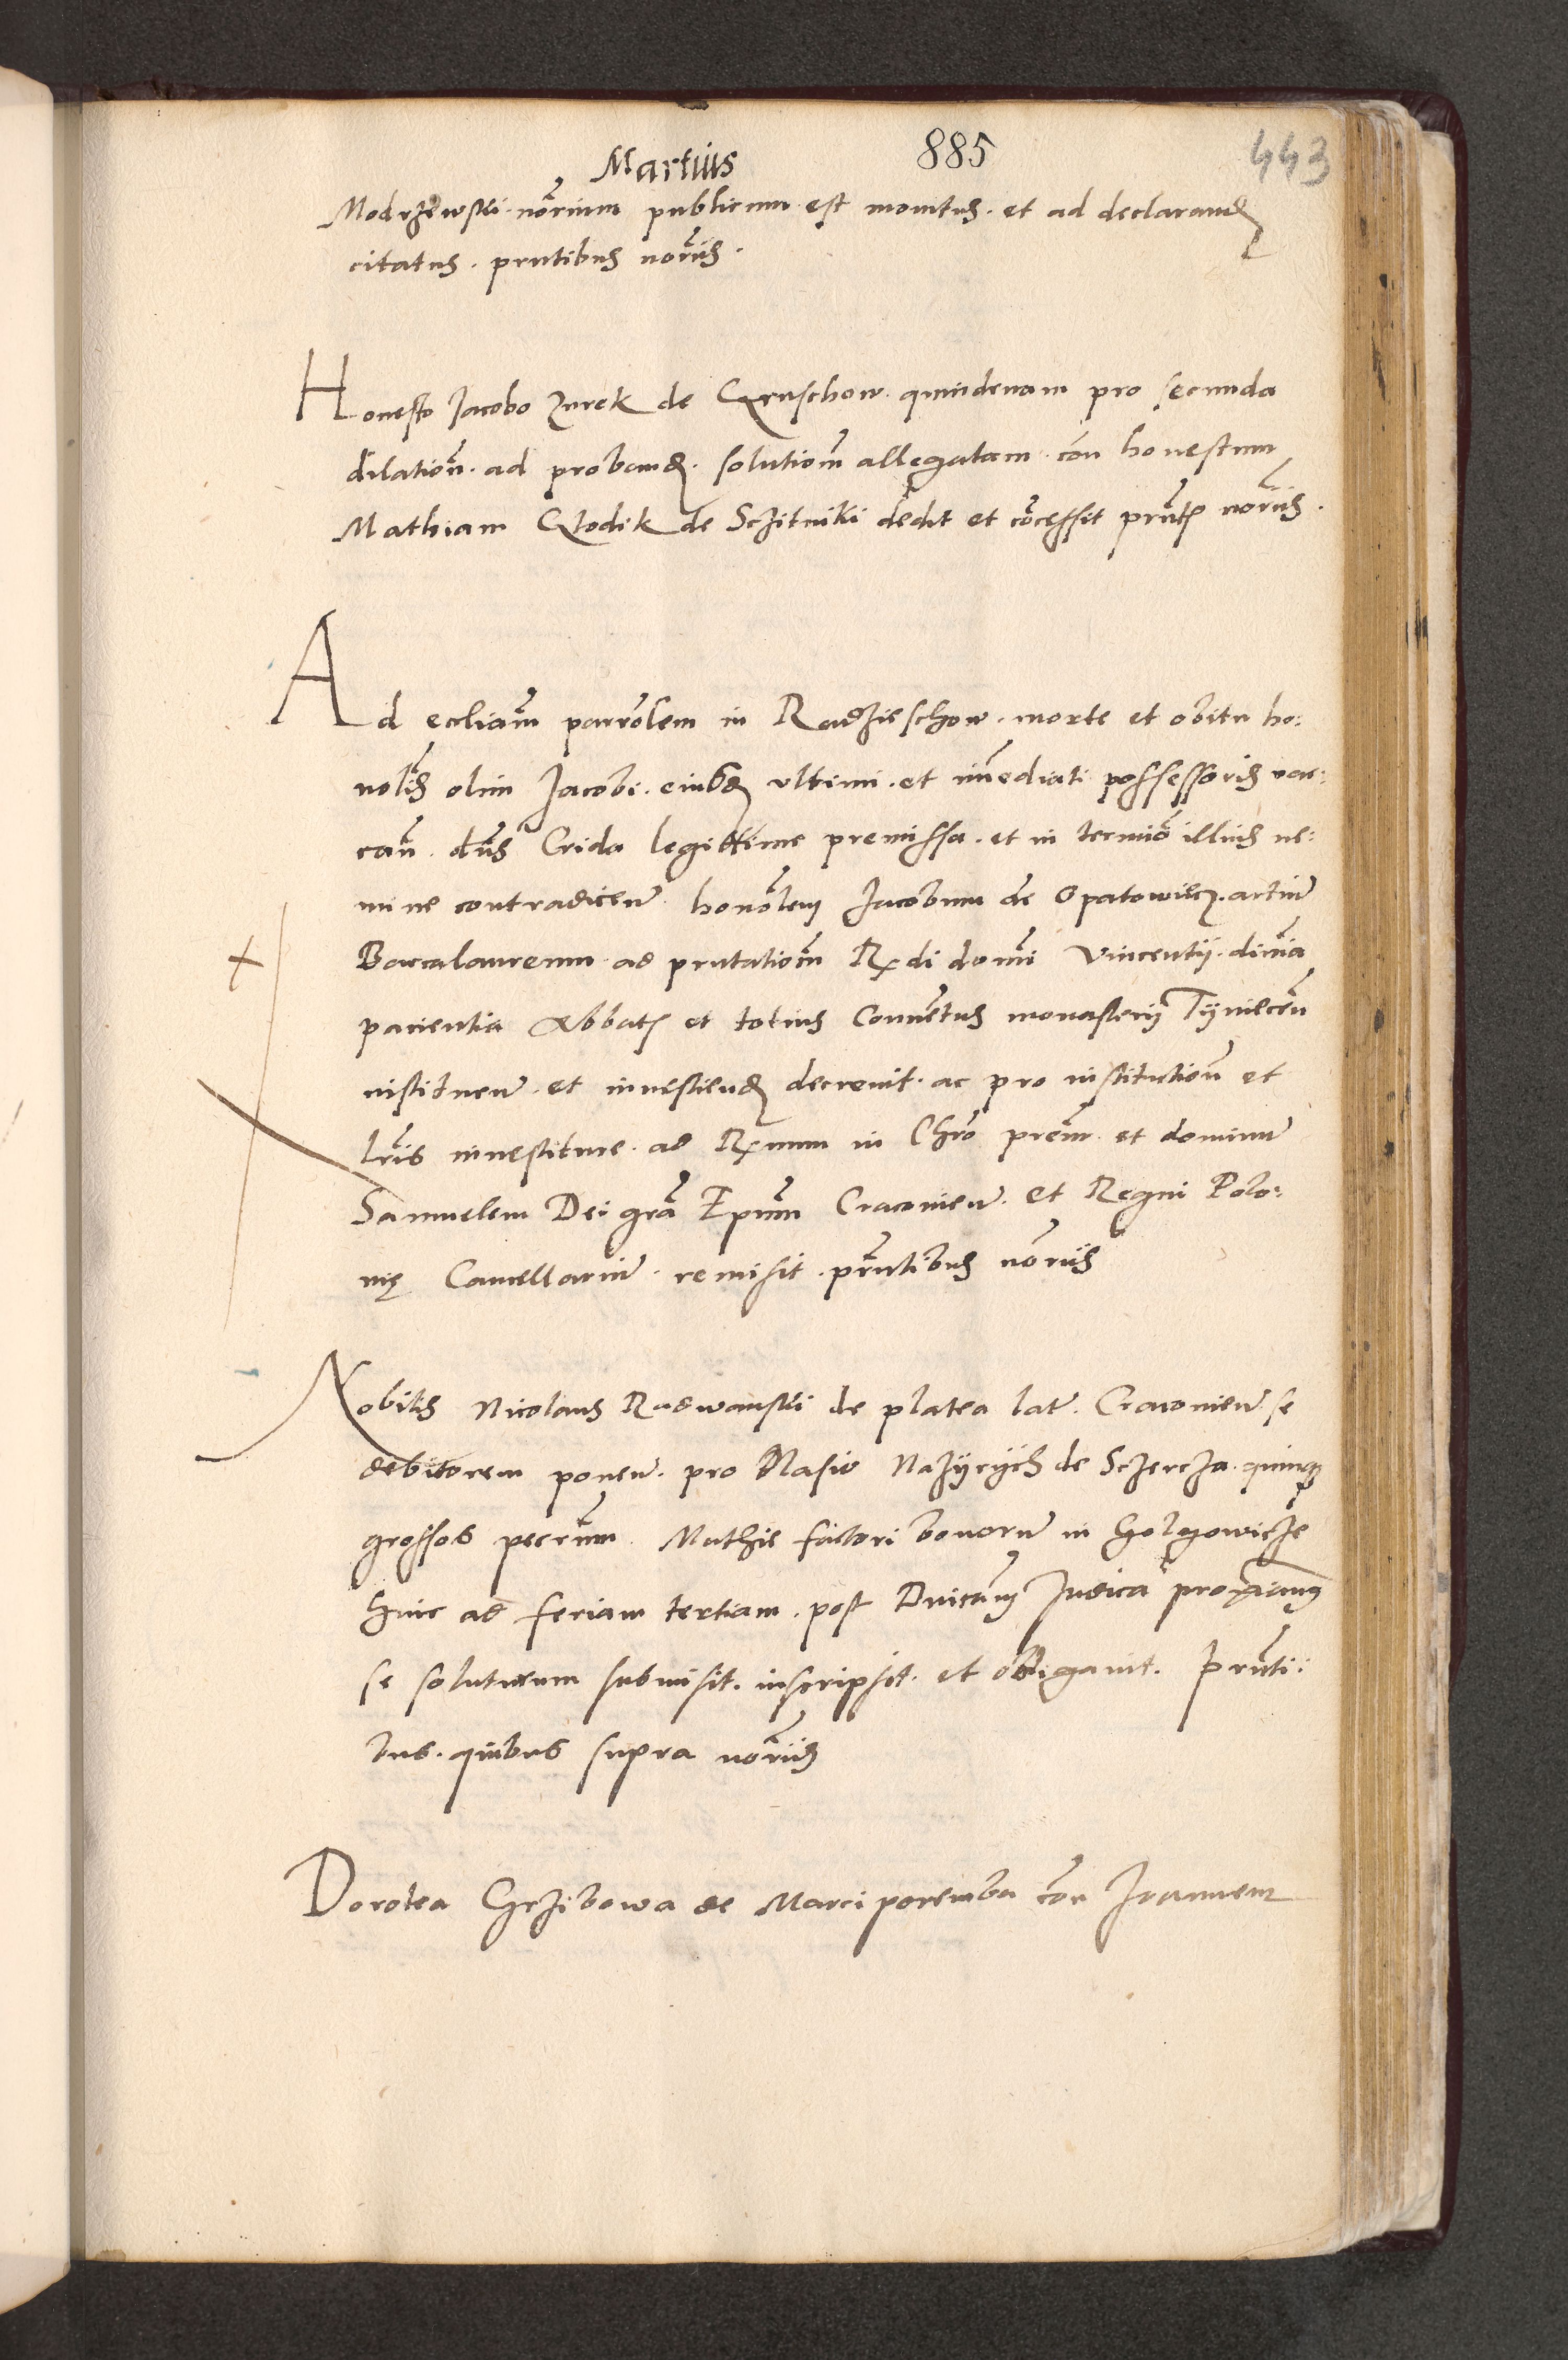 Martius 885 443
Modrzewski notarium publicum est monitus. et ad declarand
citatus. prntibus notriis.
Honesto Jacobo Zurek de Gruschow quindenam pro secunda
dilation. ad proband. solutiom allegatam con honestum
Mathiam Glodik de Sczitniki dedit et concessit prnt notriis.
Ad eccliam parrolem in Radzieschow. morte et obitu ho:
nolis olim Jacobi. eiusd ultimi. et immediati possessoris vac:
can. dus Crida legittime premissa. et in termio illius ne:
mine contradicen honolem Jacobum de Opatowiecz. artiu
Baccalaureum ad prntatiom Rdi domi Vincentij. diuina
pacientia Abbat et totius Conuentus monasterij Tyniecen
instituen et inuestiend decreuit. ac pro institution et
lris inuestiture. ad Rmum in Chro prem. et dominu
Samuelem Dei gra Epum Cracouien. et Regni Polo:
nię Cancellariu. remisit. prntibus notriis
Nobilis Nicolaus Radwanski de platea lat. Cracouien se
debitorem ponen. pro Blasio Nazijrijch de Sczercza. quinq
grossos pecrum Mathie factori bonoru in Golgowicze
hinc ad feriam tertiam. post Dnicam Judica proximam
se soluturum submisit. inscripsit. et obligauit. Prnti:
bus. quibus supra notriis
Dorotea Grzibowa de Marciporemba con Joannem